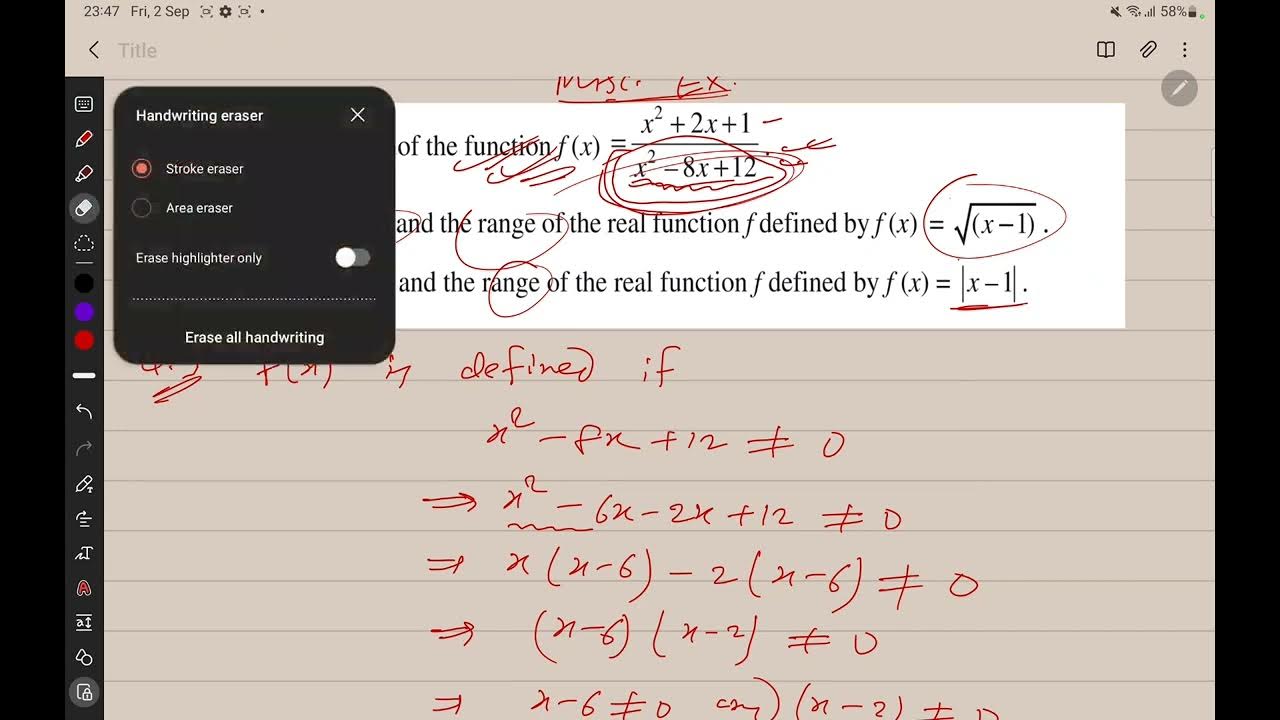 23:47 Fri, 2 Sep
58%
Title
Misc. Ex.
Handwriting eraser
Stroke eraser
Area eraser
Erase highlighter only
Erase all handwriting
of the function f (x) = (x² + 2x + 1)/(x² − 8x + 12).
and the range of the real function f defined by f (x) = √(x − 1) .
and the range of the real function f defined by f (x) = |x − 1| .
f(x) is defined if
x² − 8x + 12 ≠ 0
⇒ x² − 6x − 2x + 12 ≠ 0
⇒ x(x−6) − 2(x−6) ≠ 0
⇒ (x−6)(x−2) ≠ 0
⇒ x−6 ≠ 0 and (x−2) ≠ 0